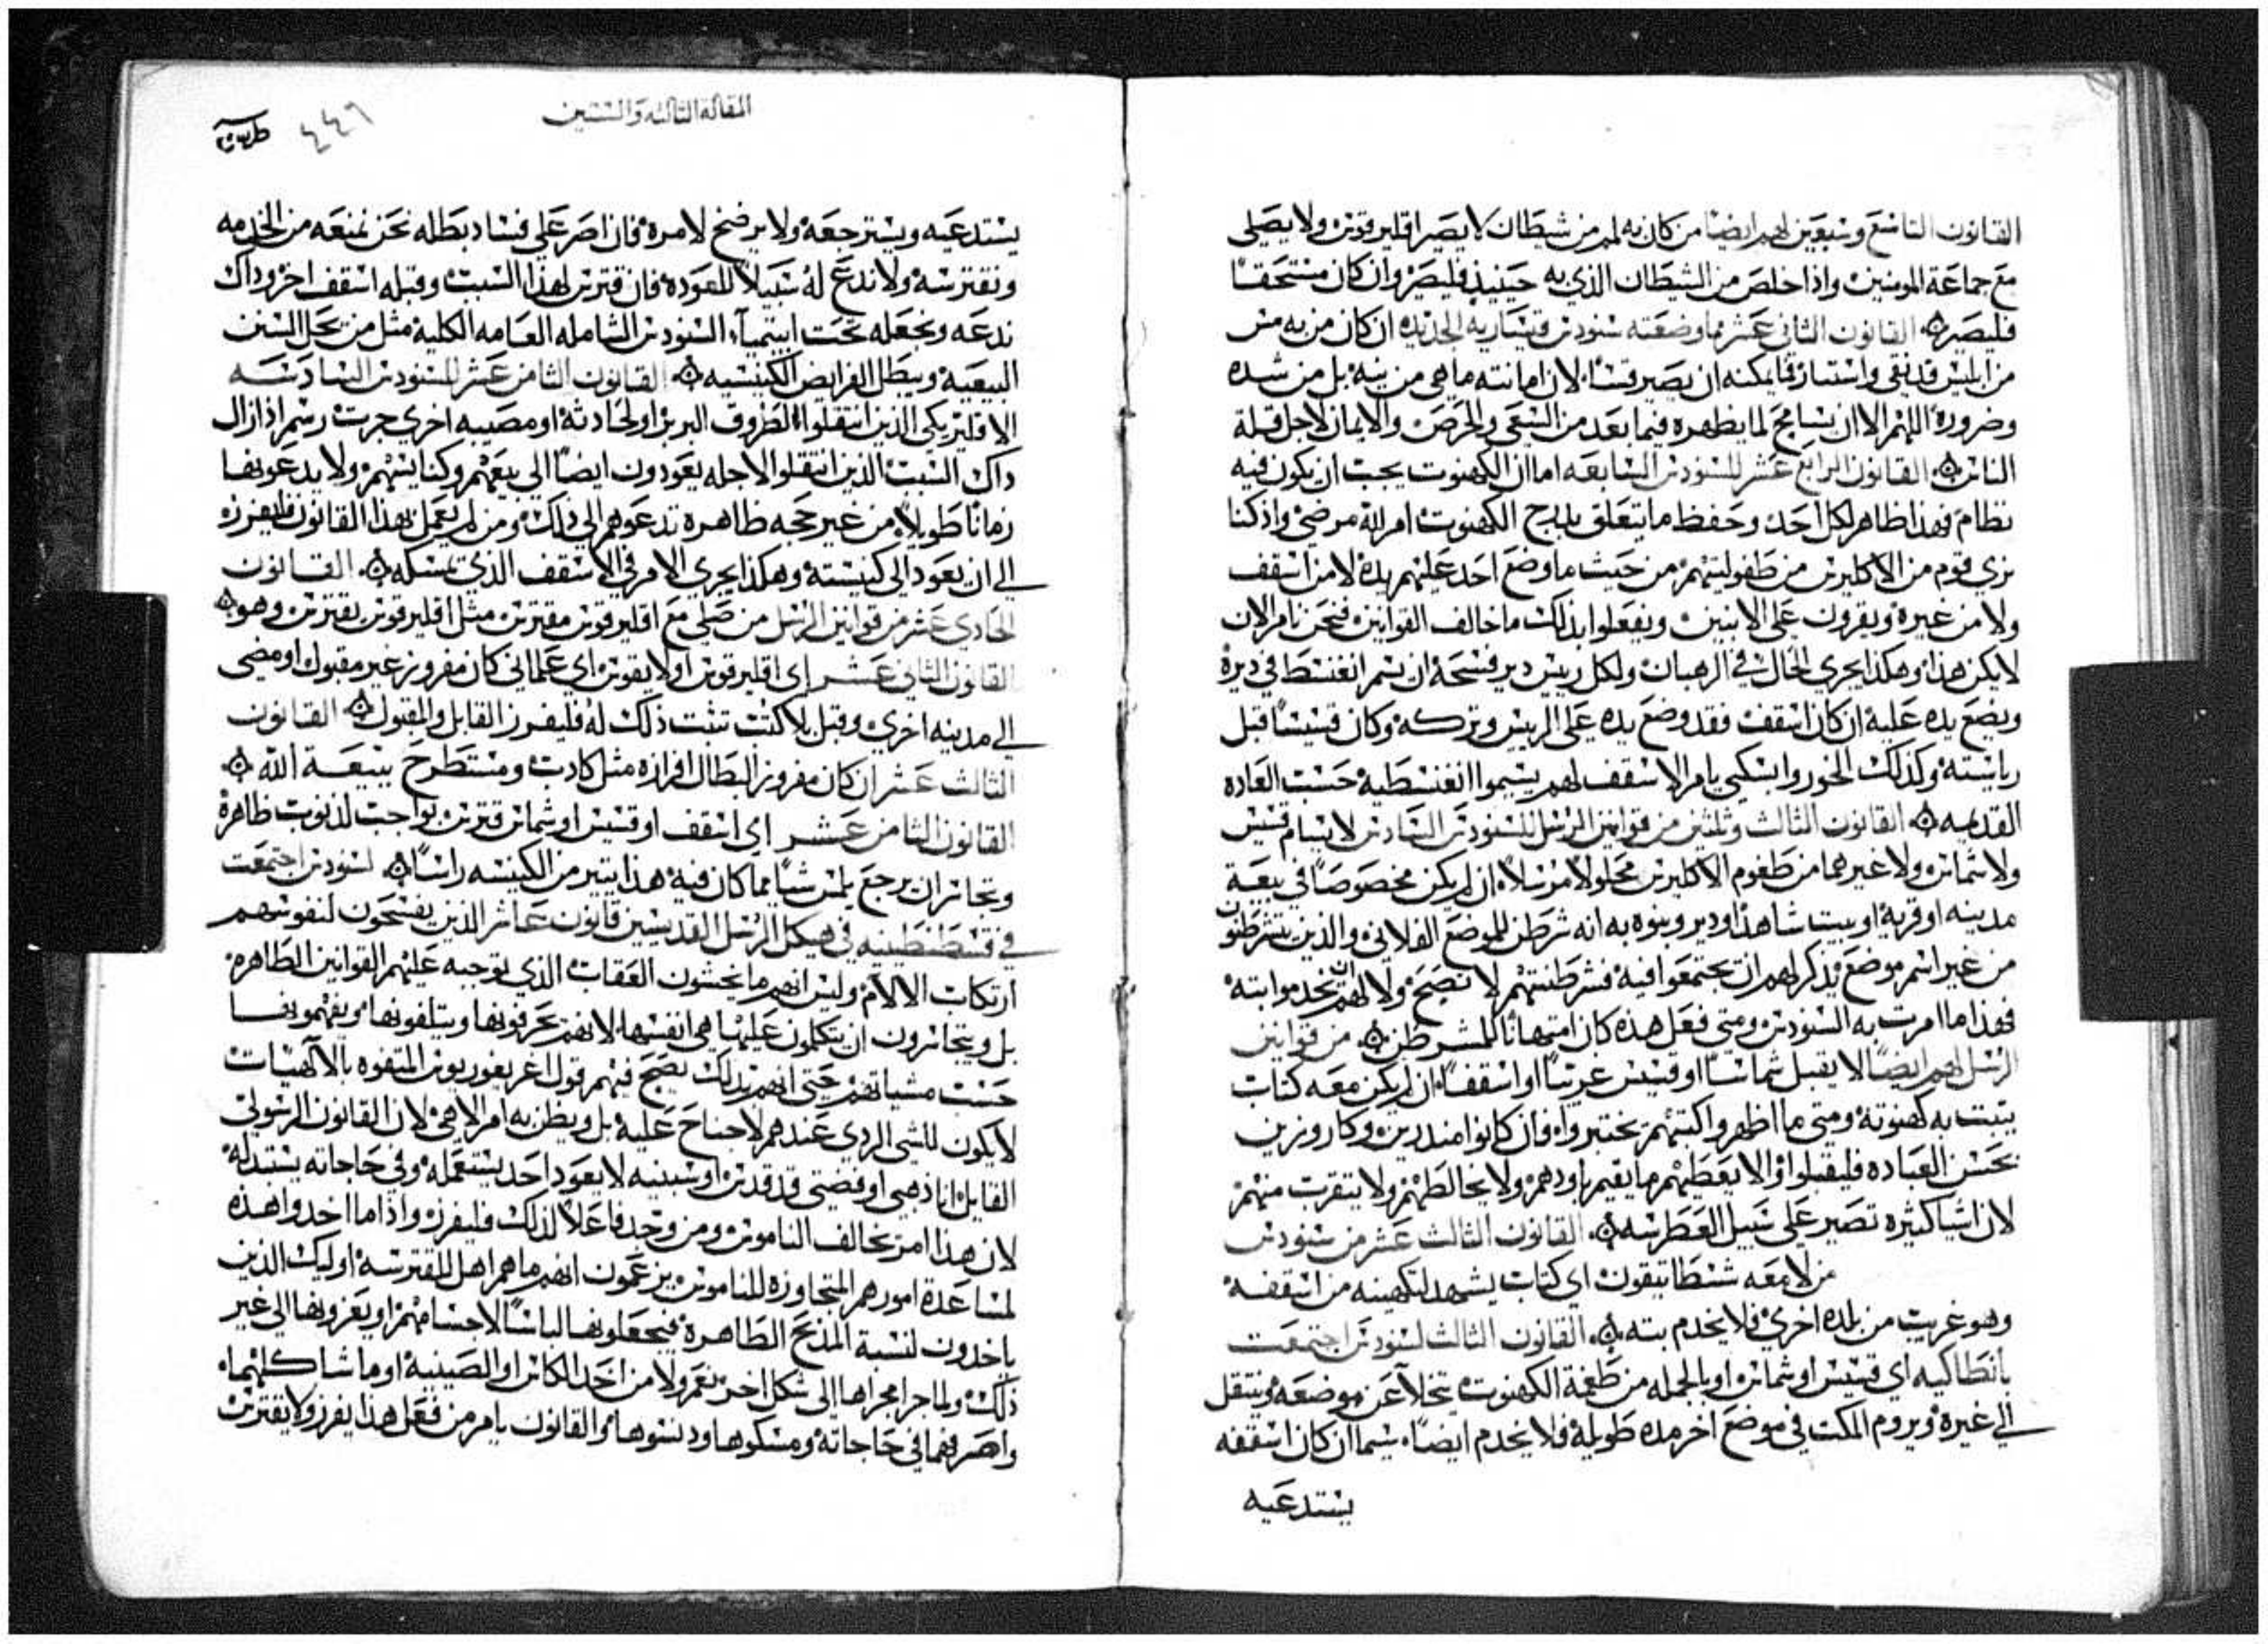 القانون التاسع وسبعين لهم ايضا من كان به لمم من شيطان لا يصير اقليرقوس ولا يصلي
مع جماعة المومنين واذا خلص من الشيطان الذي به حينيذ فليصير وان كان مستحقا
فليصير القانون الثاني عشر مما وضعته سنودس قيساريه الجديده ان كان من به مس
من ابليس قد نقي واستنار فما يمكنه ان يصير قسا لان امانته ما هي من نيه بل من شده
وضروره اللهم الا ان يسامح لما يظهره فيما بعد من السعي والحرص والايمان لاجل قلة
الناس القانون الرابع عشر للسنودس السابعه اما ان الكهنوت يجب ان يكون فيه
نظام فهذا ظاهر لكل احد وحفظ ما يتعلق بدرج الكهنوت امر لله مرضي واذ كنا
نري قوم من الاكليرس من طفوليتهم من حيث ما وضع احد عليهم يده لا من اسقف
ولا من غيره ويقرون على الانبين ويفعلوا بذلك ما خالف القوانين فنحن نامر الان
لا يكن هذا وهكذا يجري الحال في الرهبان ولكل رييس دير فسحة ان يسم انغنسط في ديره
ويضع يده عليه ان كان اسقف فقد وضع يده على الرييس وتركه وكان قسيسا قبل
رياسته وكذلك الخوروابسكبي بامر الاسقف لهم يسيموا انغنسطيه حسب العاده
القديمه القانون الثالث وثلثين من قوانين الرسل للسنودس السادس لا يسام قسيس
ولا شماس ولا غيرهما من طغوم الاكليرس محلولا مرسلا ان لم يكن مخصوصا في بيعة
مدينه او قرية او بيت شاهد او دير وينوه به انه شرطن للموضع الفلاني والذين يتشرطنون
من غير اسم موضع يذكر لهم ان يجتمعوا فيه فشرطنتهم لا تصح ولا لهم ان يخدموا بته
فهذا ما امرت به السنودس ومتى فعل هذه كان امتهانا للمشرطن من قوانين
الرسل لهم ايضا لا يقبل شماسا او قسيس غريبا او اسقفا ان لم يكن معه كتاب
يثبت به كهنوته ومتى ما اظهروا كتبهم يختبروا فان كانوا منذرين وكاروزين
بحسن العباده فليقبلوا والا يعطيهم ما يقيم باودهم ولا يخالطهم ولا يتقرب منهم
لان اشيا كثيره تصير على سبيل الغطرسه القانون الثالث عشر من سنودس
من لا معه شسطاتيقون اي كتاب يشهد لتكهينه من اسقفه
وهو غريب من بلده اخري فلا يخدم بته القانون الثالث لسنودس اجتمعت
بانطاكيه اي قسيس او شماس او بالجمله من طغمة الكهنوت تخلا عن موضعه وينتقل
الى غيره ويروم المكث في موضع اخر مده طويله فلا يخدم ايضا سيما ان كان اسقفه
يستدعيه
المقاله الثالثه والستين
٤٤٦
يستدعيه ويسترجعه ولا يرضخ لامره فان اصر على فساد بطله نحن نمنعه من الخدمه
ونقترسه ولا ندع له سبيلا للعوده فان قترس لهذا السبب وقبله اسقف اخر وداك
ندعه ونجعله تحت ابيتيميا السنودس الشامله العامه الكليه مثل من يحل السنن
البيعيه ويبطل الفرايض الكنيسيه القانون الثامن عشر للسنودس السادسه
الاقليريكي الذين انتقلوا لظروف البربر او لحادثة او مصيبه اخري جرت رسم اذا زال
داك السبب الذين انتقلوا لاجله يعودون ايضا الى بيعهم وكنايسهم ولا يدعونها
زمانا طويلا من غير حجه ظاهره تدعوهم الى ذلك ومن لم يعمل بهذا القانون فليفرز
الى ان يعود الى كنيسته وهكذا يجري الامر في الاسقف الذي تمسكه القانون
الحادي عشر من قوانين الرسل من صلي مع اقليرقوس مقترس مثل اقليرقوس يقترس وهو
القانون الثاني عشر اي اقليرقوس او لايقوس اي علماني كان مفروز غير مقبول او مضى
الى مدينه اخري وقبل بلا كتب تثبت ذلك له فليفرز القابل والمقبول القانون
الثالث عشر ان كان مفروز البطال افرازه مثل كادب ومستطرح بيعة الله
القانون الثامن عشر اي اسقف او قسيس او شماس قترس بواجب لذنوب ظاهرة
وتجاسر ان يرجع يلمس شيا مما كان فيه هذا يبتر من الكنيسه راسا لسنودس اجتمعت
في قسطنطينيه في هيكل الرسل القديسين قانون عاشر الذين يفسحون لنفوسهم
ارتكاب الالام وليس انهم ما يخشون العقاب الذي توجبه عليهم القوانين الطاهره
بل ويتجاسرون ان يتكلمون عليها هي انفسها لانهم يحرفونها ويتلفونها ويفهمونها
حسب مشياتهم حتى انهم بذلك يصح فيهم قول اغريغوريوس المتفوه بالالهيات
لا يكون للشي الردي عندهم لا جناح عليه بل ويظن به امر الاهي لان القانون الرسولي
القايل انا ذهبي او فضتي قد قدس او سبنيه لا يعود احد يستعمله وفي حاجاته يستبدله
لان هذا امر يخالف الناموس ومن وجد فاعلا لذلك فليفرز واذا ما اخدوا هذه
لمساعدة امورهم المتجاوزه للناموس يزعمون انهم ما هم اهل للقترسه اوليك الذين
ياخدون لنسبة المذبح الطاهره فيجعلونها لباسا لاجسامهم او يغزونها الى غير
ذلك ولما جرا مجراها الى شكل اخر نعم ولا من اخد الكاس او الصينية او ما شاكلهما
واهرقهما في حاجاته ومسكوها ودنسوها والقانون يامر من فعل هذا يفرز ولا يقترس